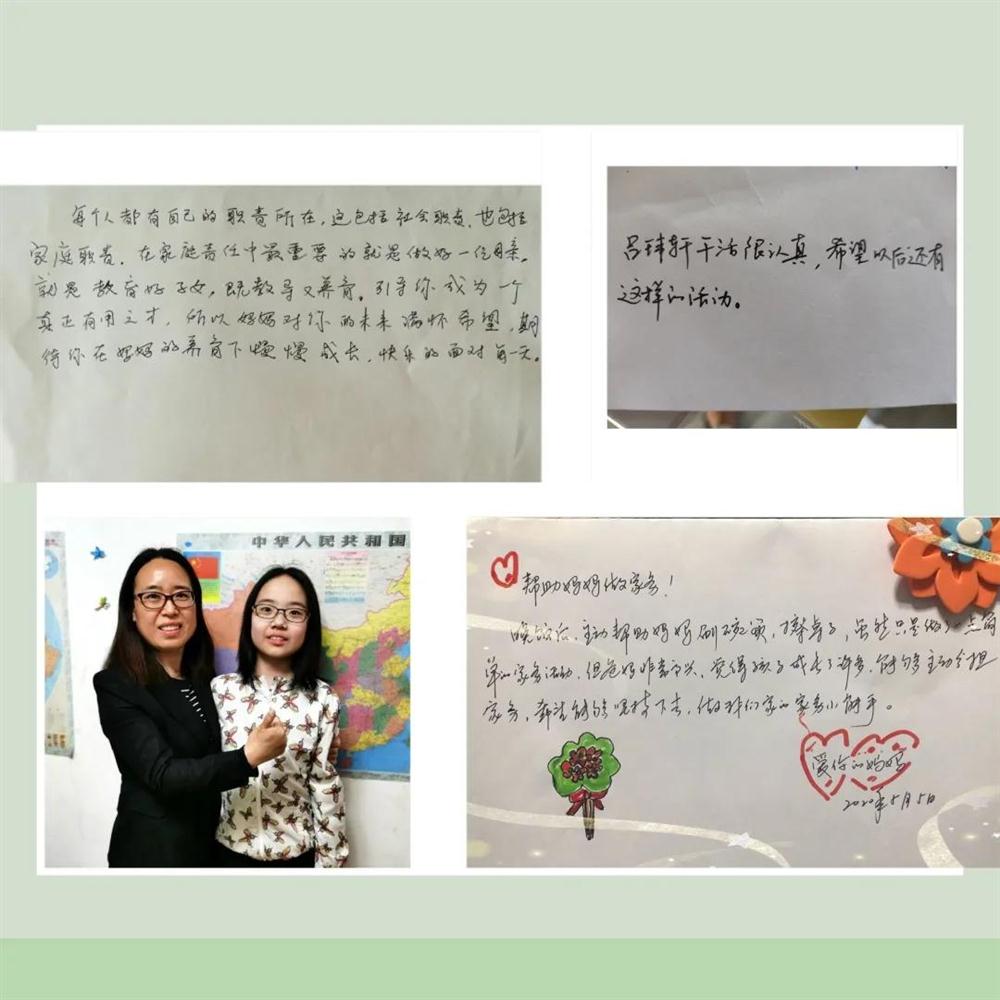 每个人都有自己的职责所在,这包括社会职责,也包括
家庭职责。在家庭责任中最重要的就是做好一位母亲。
就是教育好子女,既教导又养育。引导你成为一个
真正有用之才,所以妈妈对你的未来满怀希望,期
待你在妈妈的养育下慢慢成长,快乐的面对每一天。
吕玮轩干活很认真,希望以后还有
这样的活动。
中华人民共和国
帮助妈妈做家务!
晚饭后,主动帮助妈妈刷碗,擦桌子,虽然只是做了一点简
单的家务活动,但爸妈非常高兴,觉得孩子成长了许多,能够主动分担
家务,希望能够坚持下去,做我们家的家务小能手。
爱你的妈妈
2020年5月5日